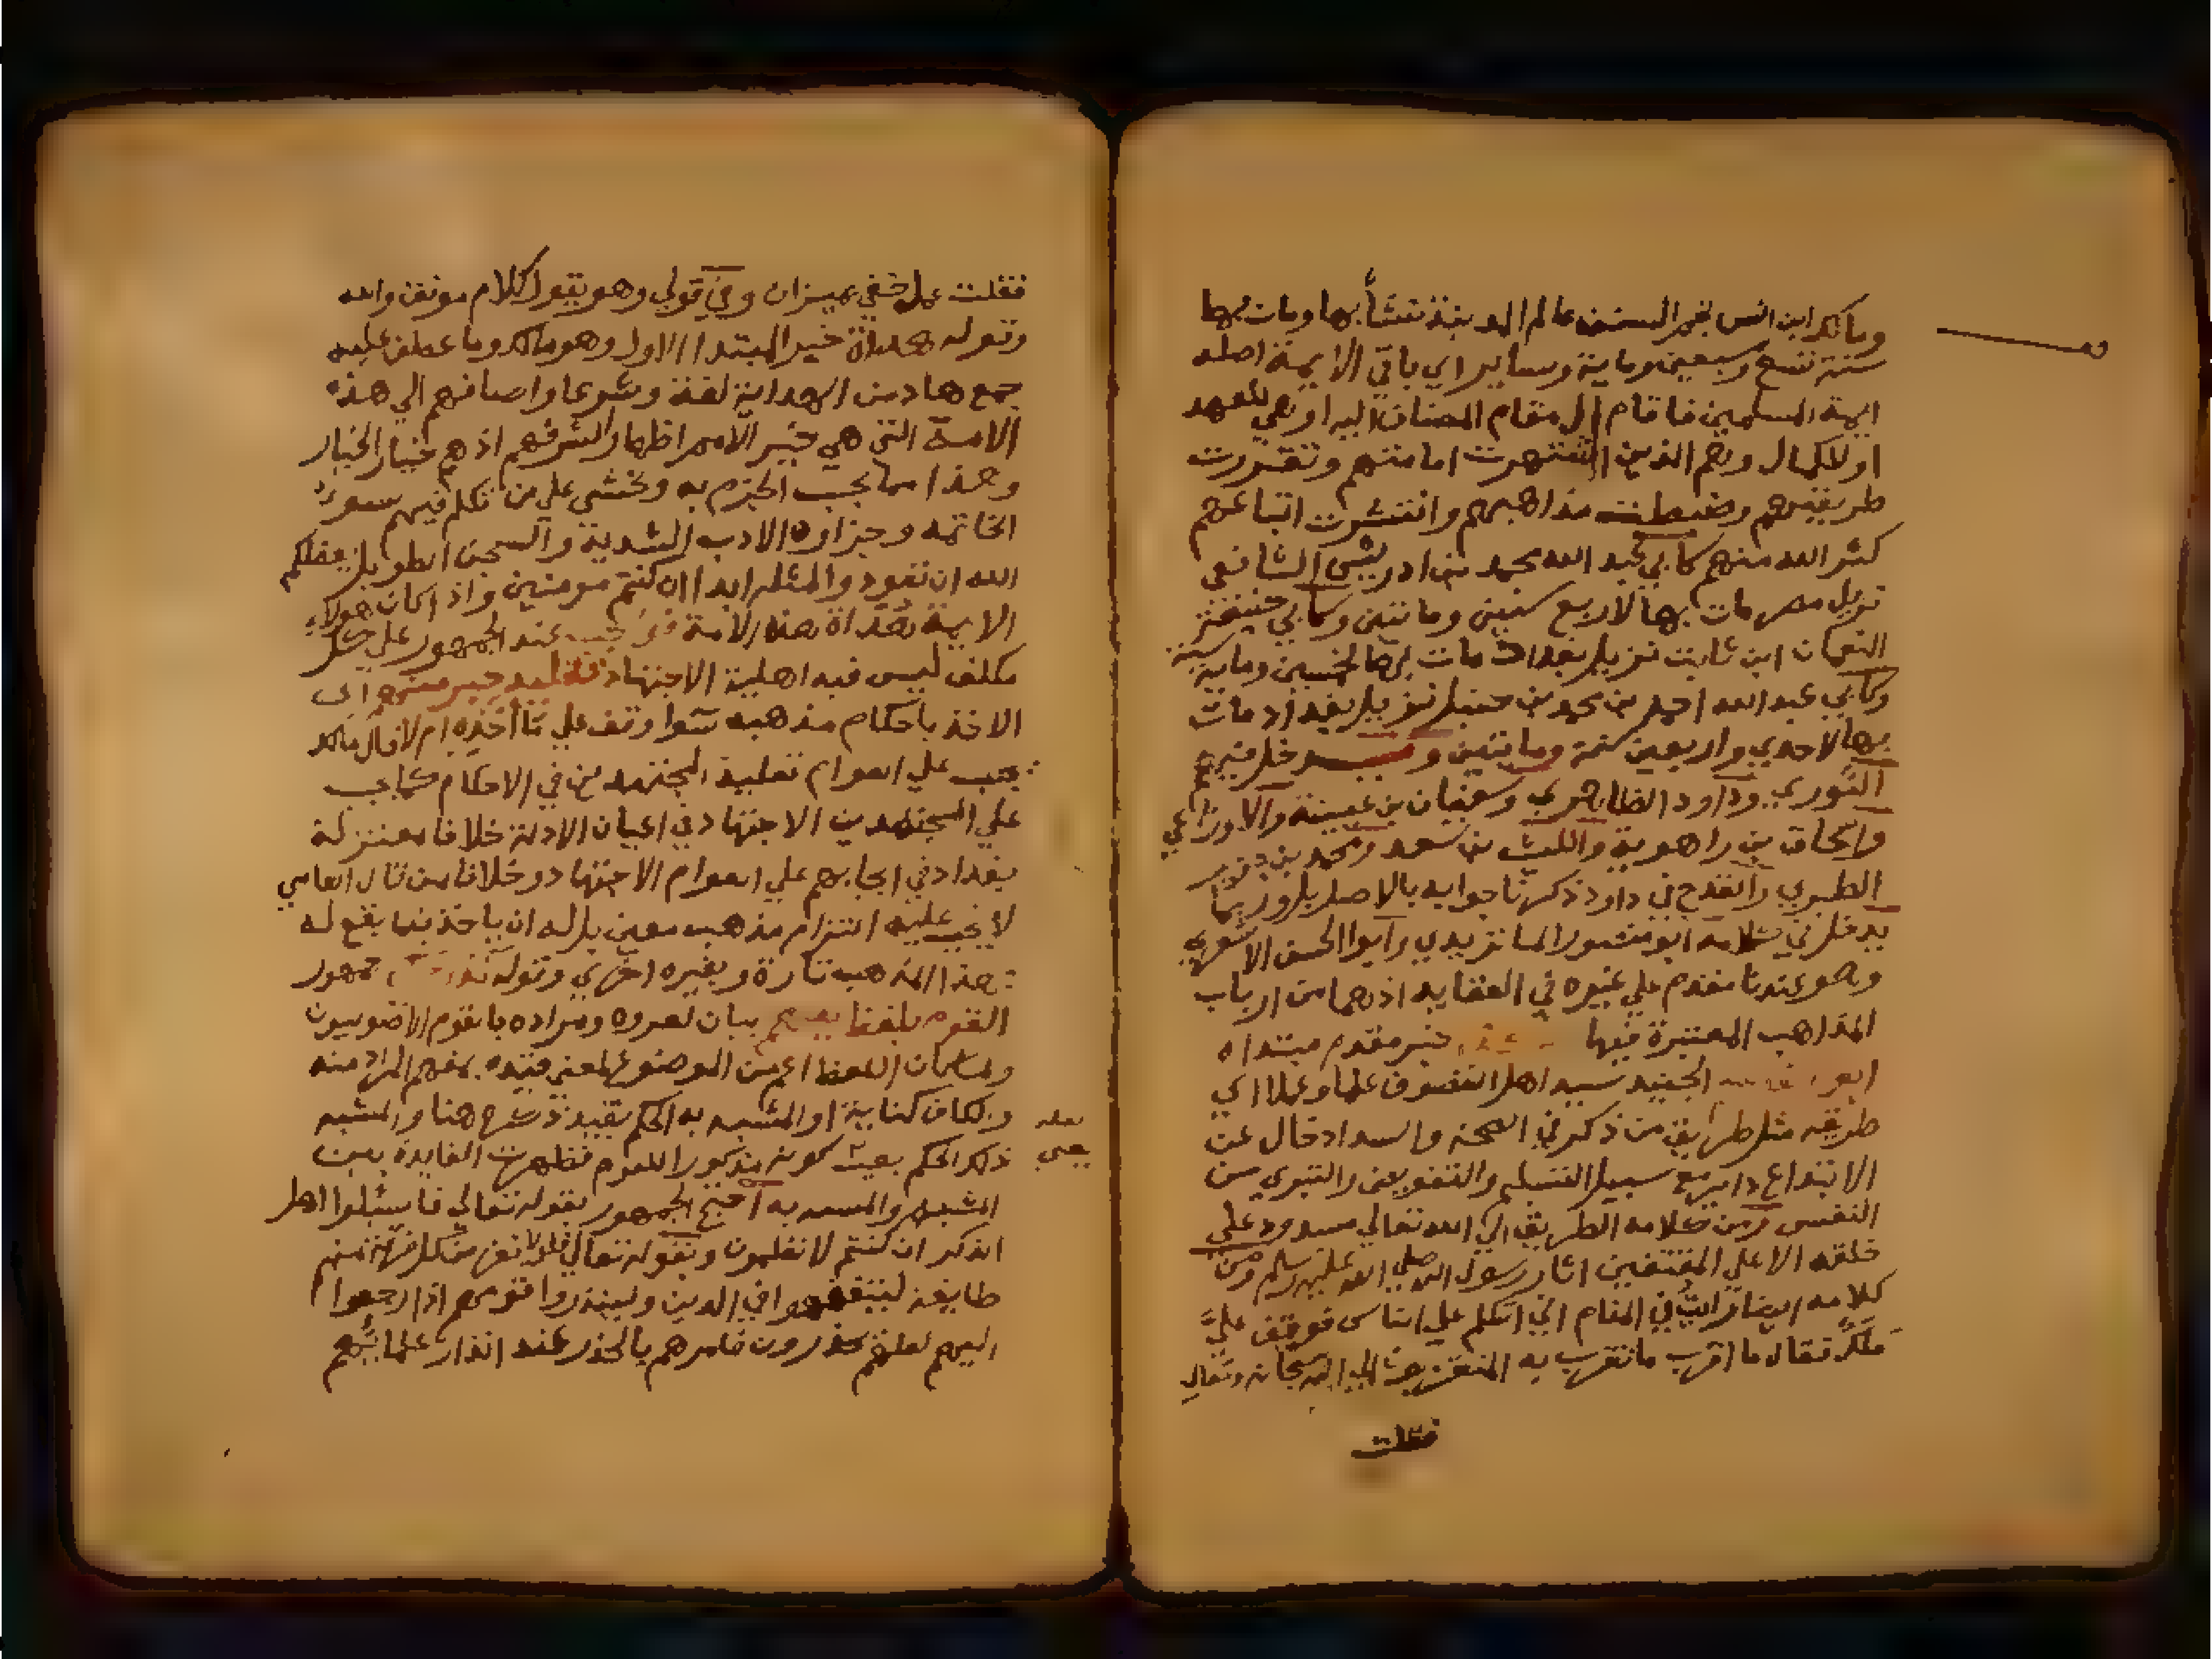 ومالك ابن انس نجم السنن عالم المدينة نشأ بها ومات بها
سنة تسع وسبعين وماية وساير اي باقي الايمة اصله
ايمة المسلمين فاقام ال مقام المضاف اليه او هي للعهد
او للكمال وهم الذين اشتهرت امامتهم وتقررت
طريقتهم وضبطت مذاهبهم وانتشرت اتباعهم
كثر الله منهم كابي عبد الله محمد بن ادريس الشافعي
نزيل مصر مات بها لاربع سنين ومائتين وكابي حنيفة
النعمان ابن ثابت نزيل بغداد مات بها لخمسين وماية سنة
وكابي عبد الله احمد بن محمد بن حنبل نزيل بغداد مات
بها لاحدي واربعين سنة ومايتين ودخل فيهم
الثوري وداود الظاهري وسفيان بن عيينة والاوزاعي
واسحاق بن راهوية والليث بن سعد ومحمد بن جرير
الطبري والقدح في داود ذكرنا جوابه بالاصل بل وربما
يدخل في كلامه ابو منصور الماتريدي وابوا الحسن الاشعري
وهو عندنا مقدم علي غيره في العقايد اذ هما من ارباب
المذاهب المعتبرة فيها خبر مقدم مبتداه
ابو الجنيد سيد اهل التصوف علما وعملا اي
طريقه مثل طرايق من ذكر في الصحة والسداد خال عن
الابتداع داير مع سبيل التسليم والتفويض والتبري من
النفس ومن كلامه الطريق الي الله تعالي مسدود علي
خلقه الا علي المقتفين اثار رسول الله صلي الله عليه وسلم ومن
كلامه ايضا رايت في المنام اني اتكلم علي الناس فوقف عليّ
ملك فقال ما اقرب ما تقرب به المتقربون الي الله سبحانه وتعالي
فقلت
فقلت عمل خفي بميزان وفي قولي وهو يقول كلام موفق والله
وقوله هداة خبر المبتدا الاول وهو مالك وما عطف عليه
جمع هاد من الهداية لغة وشرعا واضافهم الي هذه
الامة التي هي خير الامم اظهارا لشرفهم اذ هم خيار الخيار
وهذا مما يجب الجزم به ويخشي علي من تكلم فيهم سوء
الخاتمه وجزاوه الادب الشديد والسجن الطويل يعظكم
الله ان تعودوا لمثله ابدا ان كنتم مومنين واذا كان هولاء
الايمة هداة هذه الامة فواجب عند الجمهور علي كل
مكلف ليس فيه اهلية الاجتهاد تقليد حبر منهم اي
الاخذ باحكام مذهبه سوا وقف علي ماخذه ام لا قال مالك
يجب علي العوام تقليد المجتهدين في الاحكام كما يجب
علي المجتهدين الاجتهاد في اعيان الادلة خلافا لمعتزلة
بغداد في ايجابهم علي العوام الاجتهاد وخلافا لمن قال العامي
لا يجب عليه التزام مذهب معين بل له ان ياخذ بما يقع له
بهذا المذهب تارة وبغيره اخري وقوله جمهور
القوم بلفظ يفهم بيان لعروه ومراده بالقوم الاصوليون
ولما كان اللفظ اعم من الموضوع لمعني قيده بفهم المراد منه
والكاف كناية او المشبه به الحكم بقيد ذ هنا والمشبه
ذلك الحكم بحيث كونه مذكورا للقوم فظهرت الفايدة بين
المشبه والمشبه به احتج الجمهور بقوله تعالي فاسئلوا اهل
الذكر ان كنتم لا تعلمون وبقوله تعالي فلولا نفر من كل فرقة منهم
طايفة ليتفقهوا في الدين ولينذروا قومهم اذا رجعوا
اليهم لعلهم يحذرون فامرهم بالحذر عند انذار علمائهم
لعله
يعني